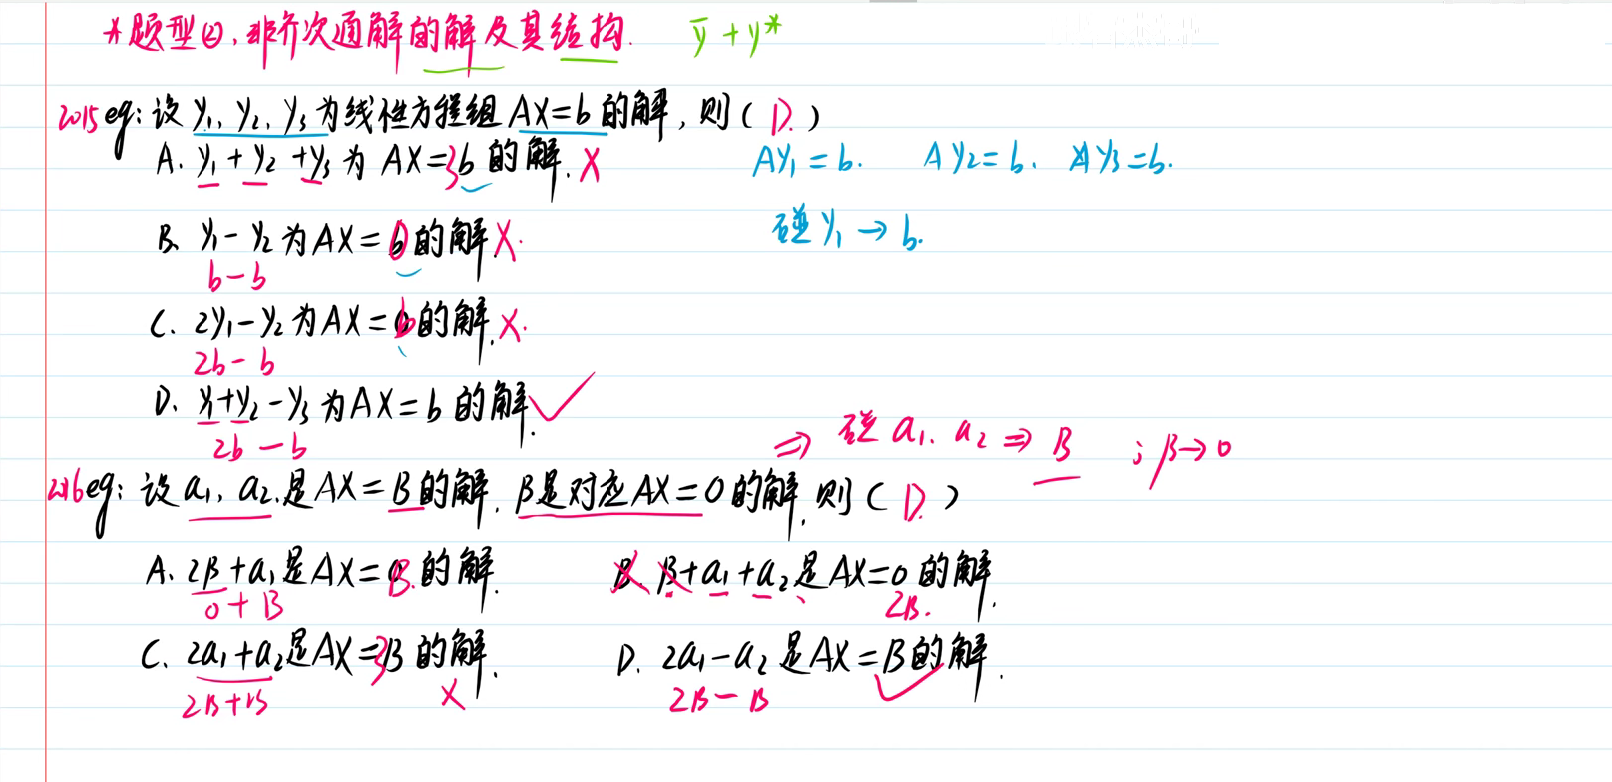 *题型②，非齐次通解的解及其结构. ȳ+y*
2015 eg: 设 y₁, y₂, y₃ 为线性方程组 AX=b 的解，则（ D. ）
A. y₁+y₂+y₃ 为 AX=3b 的解. X AY₁=b. AY₂=b. AY₃=b.
B. y₁-y₂ 为 AX=0 的解 X. 碰 y₁→b.
b-b
C. 2y₁-y₂ 为 AX=b 的解. X.
2b-b
D. y₁+y₂-y₃ 为 AX=b 的解. ✓
2b-b
⇒ 碰 a₁. a₂ ⇒ B ; β→0
2016 eg: 设 a₁, a₂ 是 AX=B 的解. β是对应 AX=0 的解, 则（ D. ）
A. 2β+a₁ 是 AX=B. 的解. B. β+a₁+a₂ 是 AX=0 的解.
0+B 2B.
C. 2a₁+a₂ 是 AX=3B 的解. D. 2a₁-a₂ 是 AX=B 的解. ✓
2B+B X 2B-B